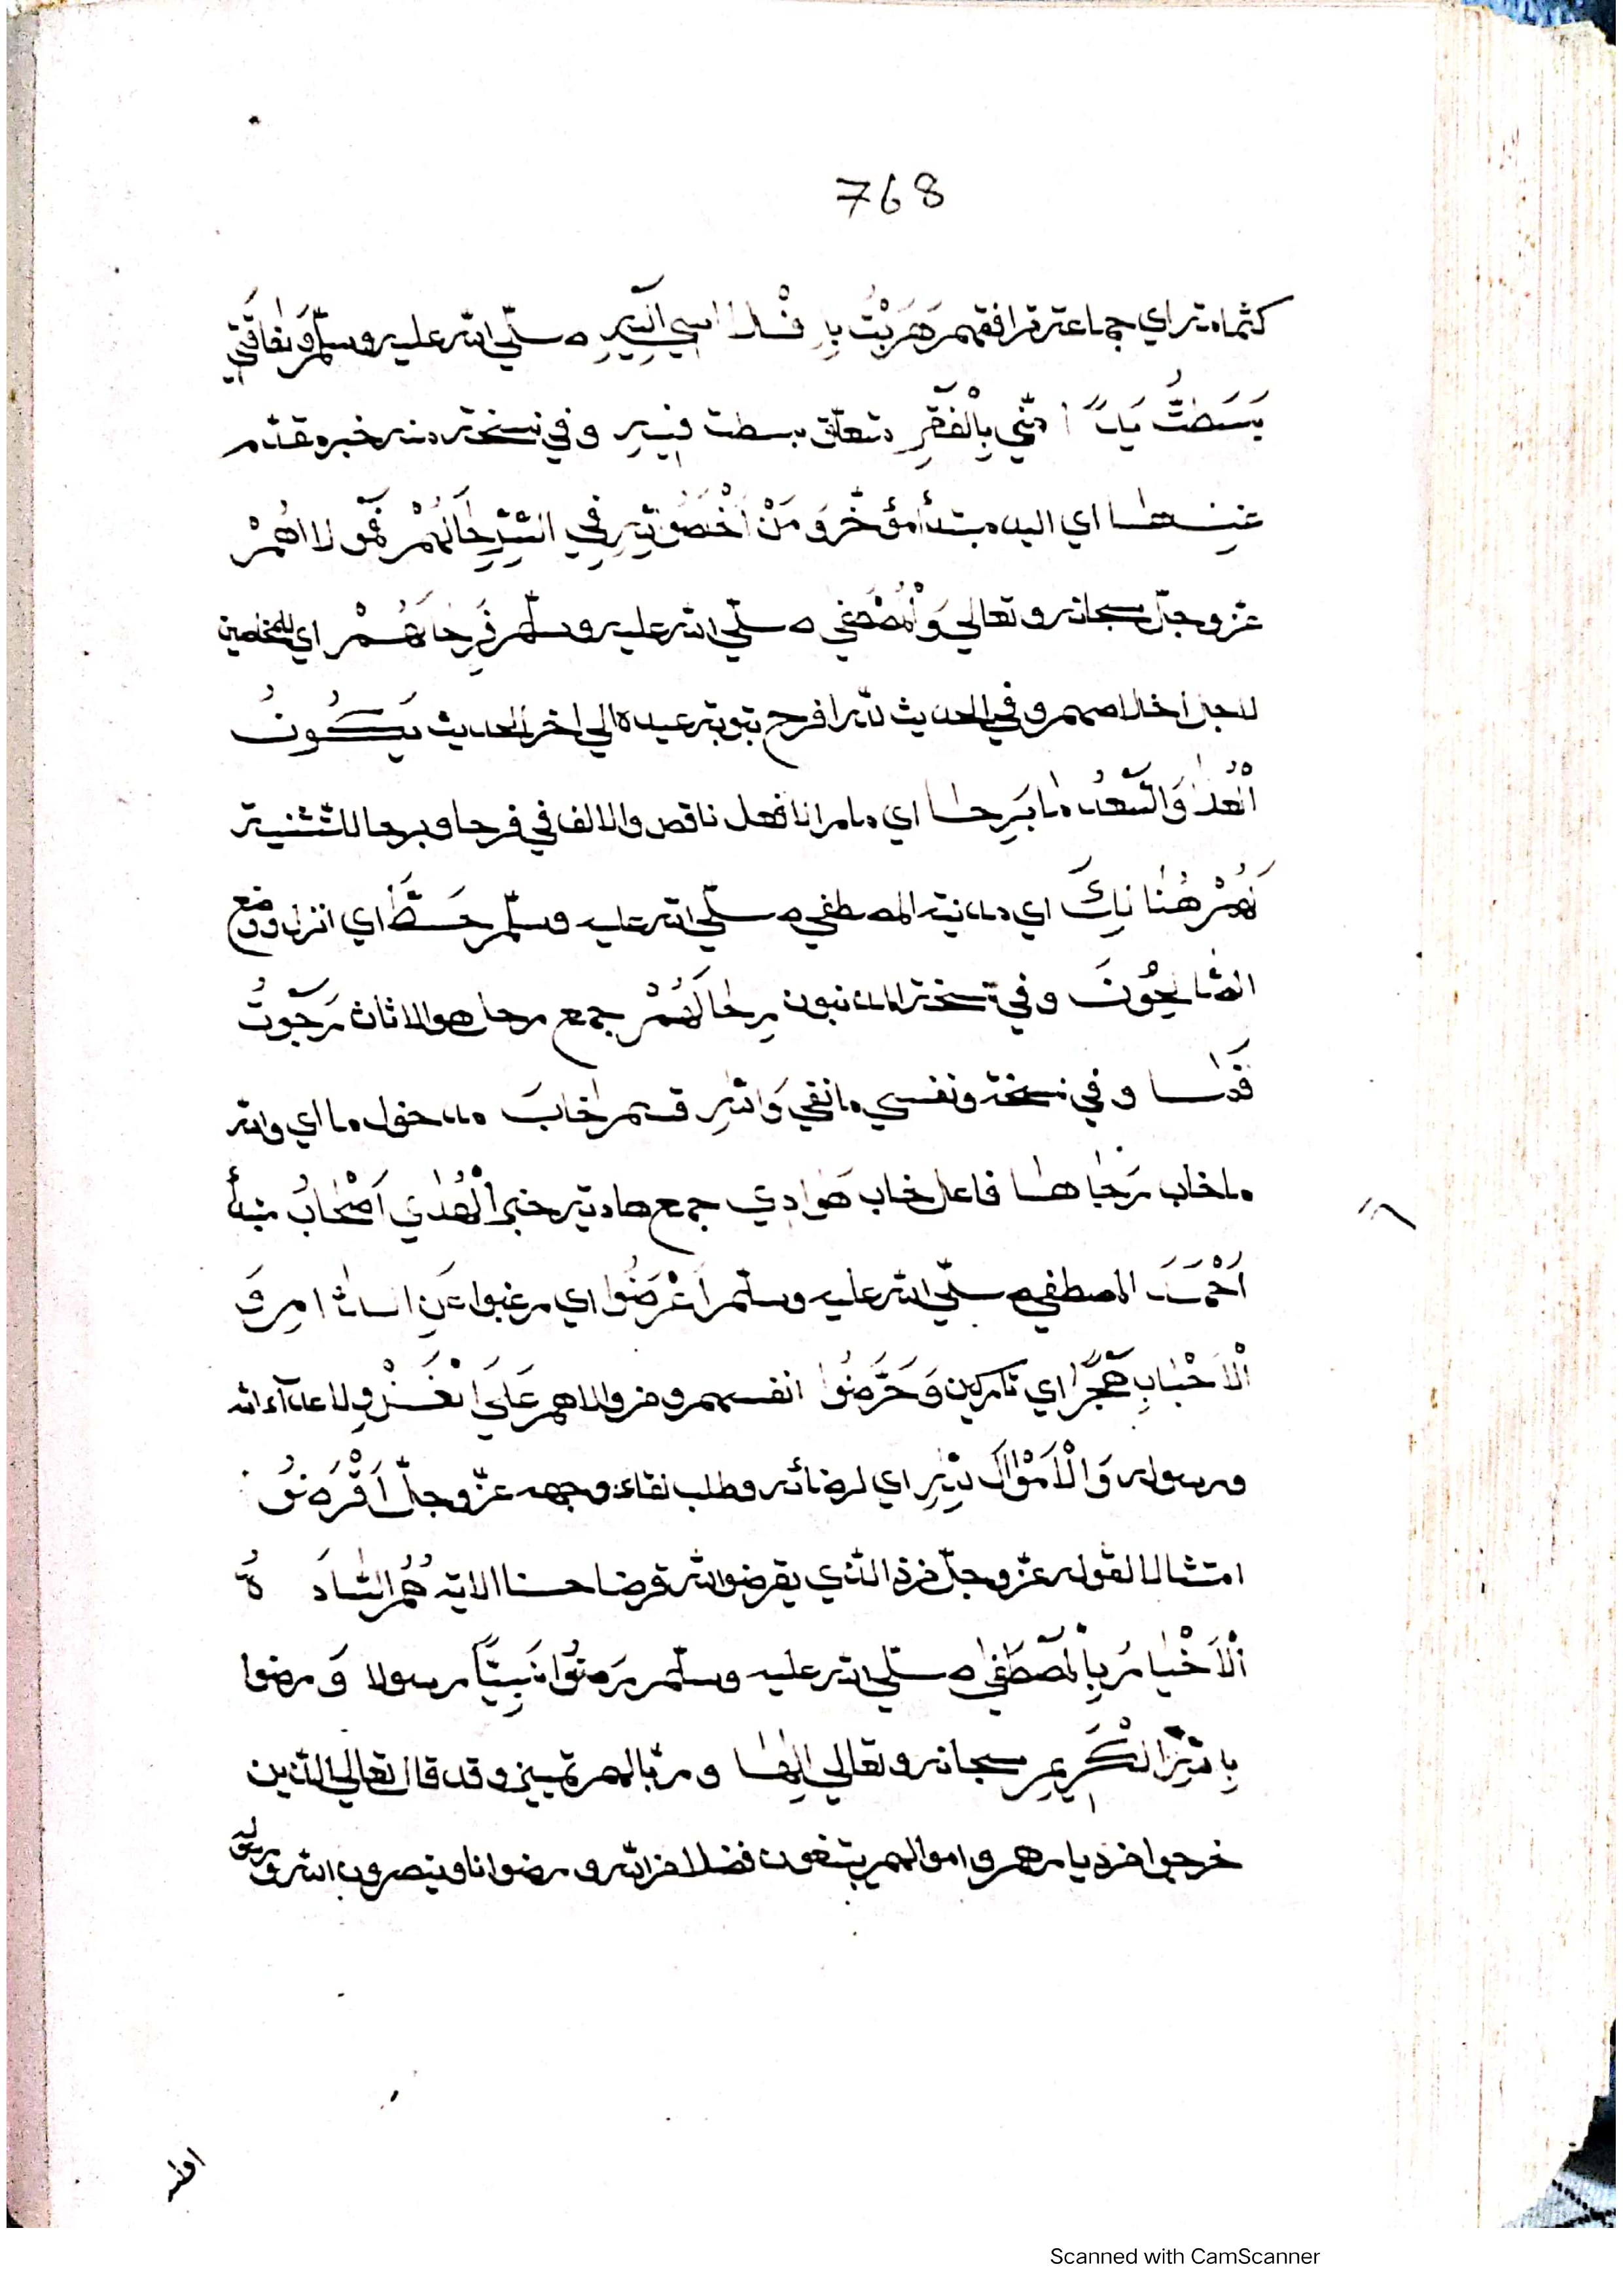 768
كثمامة اي جماعة ترافقهم هَرَبْتُ بِإِفْلَاسِي اِلَيْهِ صلّي الله عليه وسلّم وَفَاقَتِي
بَسَطْتُ يَداً مِنِّي بِالْفَقْرِ متعلّق ببسطت فِيهِ وفي نسخة منه خبر مقدّم
اي اليد مبتدأ مؤخّر وَمَنْ في لَهُمْ
عزّ وجلّ سبحانه وتعالي وَالْمُصْطَفَي صلّي الله عليه وسلّم فَرِحَا هُمْ اي للمخلصين
لاجل اخلاصهم وفي الحديث لله افرح بتوبة عبده الي اخر الحديث يَكُونُ
الْعُلَا وَالسَّعْدُ مَا بَرِحَا اي ما مرانا فعل ناقص والالف في فرحا وبرحا للتّثنية
لَهُمْ هُنَالِكَ اي مدينة المصطفي صلّي الله عليه وسلّم حَطَّ اي انزل ووضع
الْمَادِحُونَ وفي نسخة المذنبون رِحَالَهُمْ جمع رحل هو الاثاث رَجَوْتُ
وفي نسخة ونفسي وَاللهِ قسم خَابَ مدخول ما اي والله
ما خاب رَجَاهَا فاعل خاب هَوَادِي جمع هادية خبر الْهُدَي اَصْحَابُ مبتدأ
اَحْمَدَ المصطفي صلّي الله عليه وسلّم اَعْرَضُوا اي رغبوا عَنِ الدَّارِ وَ
الْاَحْبَابِ هَجْراً اي تاركين وَحَرَّضُوا انفسهم ومن والاهم عَلَي الْغَزْوِ لاعداء الله
ورسوله وَالْاَمْوَالَ لِلّٰهِ اي لرضائه وطلب لقاء وجهه عزّ وجلّ اَقْرَضُوا
امتثالا لقوله عزّ وجلّ من ذا الّذي يقرض الله قرضا حسنا الاية هُمُ السَّادَةُ
الْاَخْيَارُ بِالْمُصْطَفَي صلّي الله عليه وسلّم رَضُوا نَبِيّاً رسولا وَرضوا
بِاللهِ الْكَرِيمِ سبحانه وتعالي اِلٰهًا وربّا لهم تمييز وقد قال تعالي الّذين
خرجوا من ديارهم واموالهم يبتغون فضلا من الله ورضوانا وينصرون الله ورسوله
اولٰئك
Scanned with CamScanner